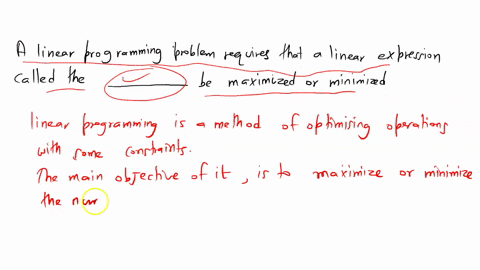 A linear programming problem requires that a linear expression
called the ________ be maximized or minimized
linear programming is a method of optimising operations
with some constaints.
The main objective of it, is to maximize or minimize
the num